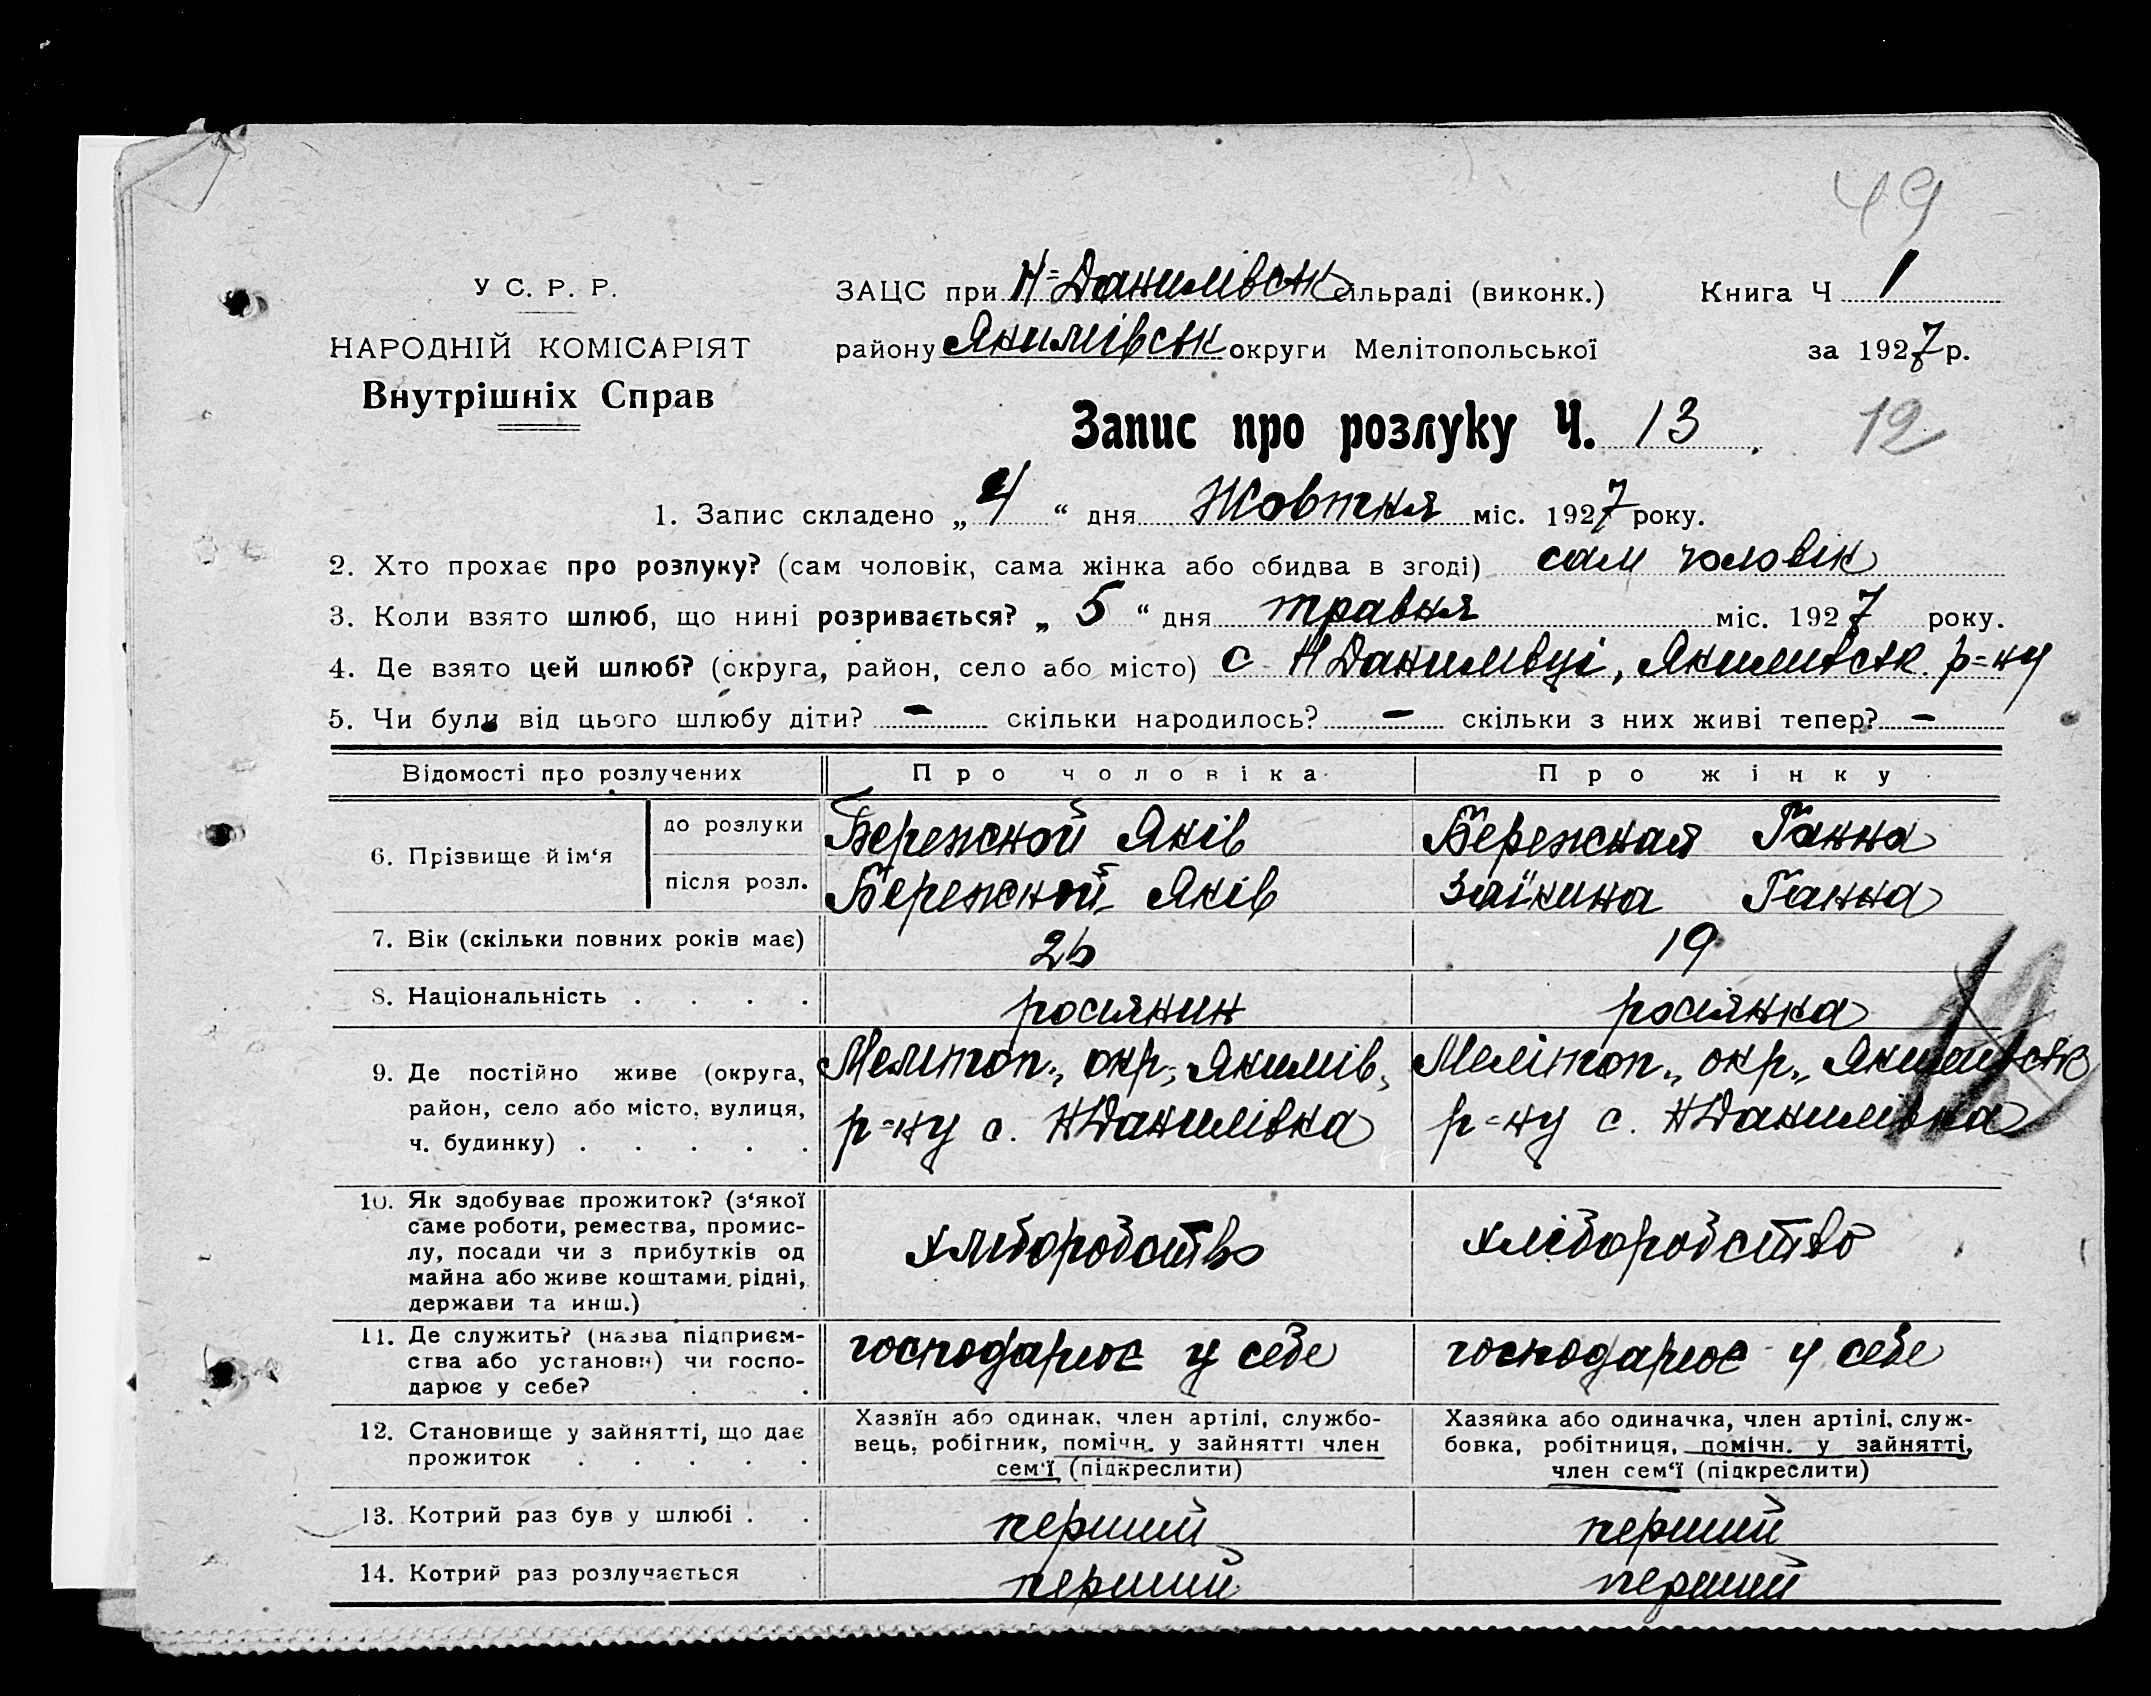 49
У С. Р. Р.
НАРОДНІЙ КОМІСАРІЯТ
Внутрішніх Справ
ЗАЦС при Н-Данилівськ сільраді (виконк.) Книга Ч 1
району Якимівськ округи Мелітопольської за 1927 р.
Запис про розлуку Ч. 13
12
1. Запис складено „ 4 “ дня Жовтня міс. 1927 року.
2. Хто прохає про розлуку? (сам чоловік, сама жінка або обидва в згоді) сам чоловік
3. Коли взято шлюб, що нині розривається? „ 5 “ дня травня міс. 1927 року.
4. Де взято цей шлюб? (округа, район, село або місто) с НДанилівці, Якимівськ. р=ну
5. Чи були від цього шлюбу діти? — скільки народилось? — скільки з них живі тепер? —
Відомості про розлучених Про чоловіка Про жінку
6. Прізвище й ім‘я
до розлуки Бережской Яків Бережская Ганна
після розл. Бережской Яків Заїкина Ганна
7. Вік (скільки повних років має) 26 19
8. Національність . . . . росіянин росіянка
9. Де постійно живе (округа, район, село або місто, вулиця, ч. будинку) . . . . .
Меліт оп., окр., Якимів, р=ну с. НДанилівка
Мелітоп., окр., Якимівськ р=ну с. НДанилівка
10. Як здобуває прожиток? (з‘якої
саме роботи, ремества, промис-
лу, посади чи з прибутків од
майна або живе коштами, рідні,
держави та инш.)
хліборобство хліборобство
11. Де служить? (назва підприєм-
ства або установи) чи госпо-
дарює у себе? . .
господарює у себе господарює у себе
12. Становище у зайнятті, що дає
прожиток . . . . .
Хазяїн або одинак. член артілі, службо-
вець, робітник, помічн. у зайнятті член
сем‘ї (підкреслити)
Хазяйка або одиначка, член артілі, служ-
бовка, робітниця, помічн. у зайнятті,
член сем‘ї (підкреслити)
13. Котрий раз був у шлюбі . . перший перший
14. Котрий раз розлучається перший перший